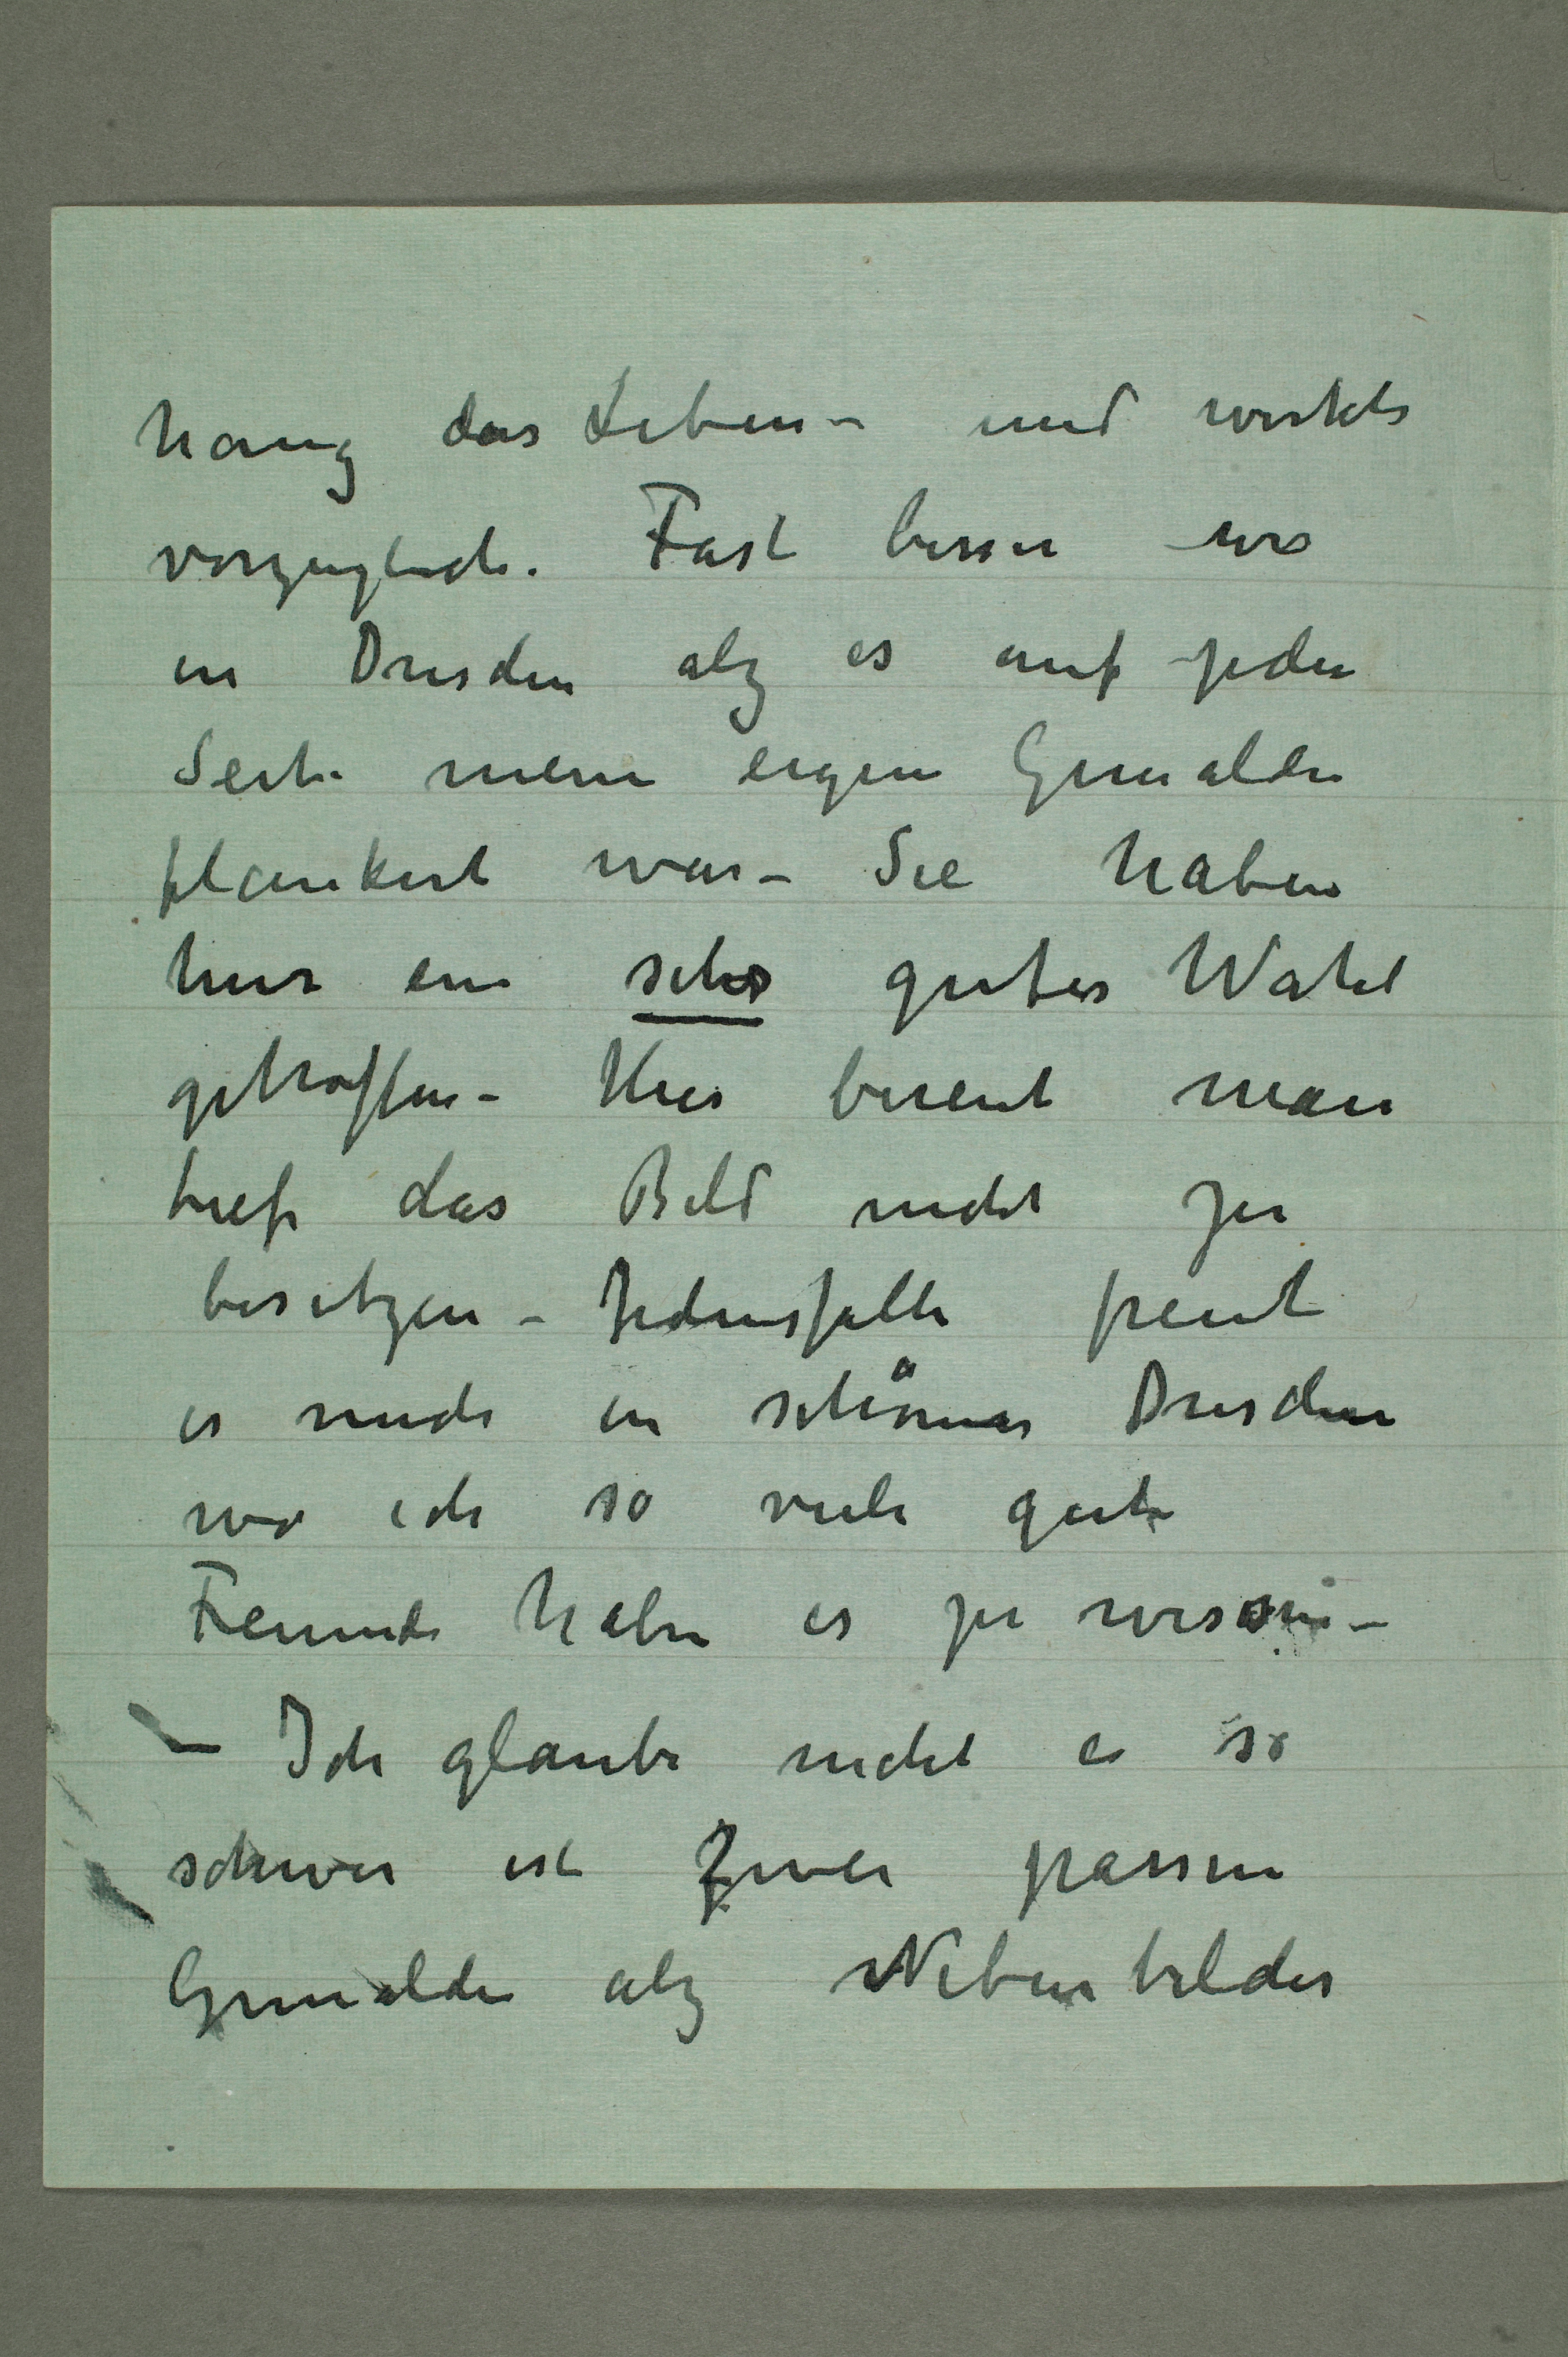 hang das Leben – und wirkte
vorzuglich. Fast besser wie
in Dresden alz es auf jeder
Seite meine eigene Gemälde
flankirt war – Sie haben
hier ein sehr gutes Wahl
getroffen – Hier bereut man
tief das Bild nicht zu
besitzen – Jedenfalls freut
es mich in schönes Dresden
wo ich so viele gute
Freunde habe es zu wissen –
– Ich glaube nicht es so
schwer ist zwei passen
Gemälde alz Nebenbilder